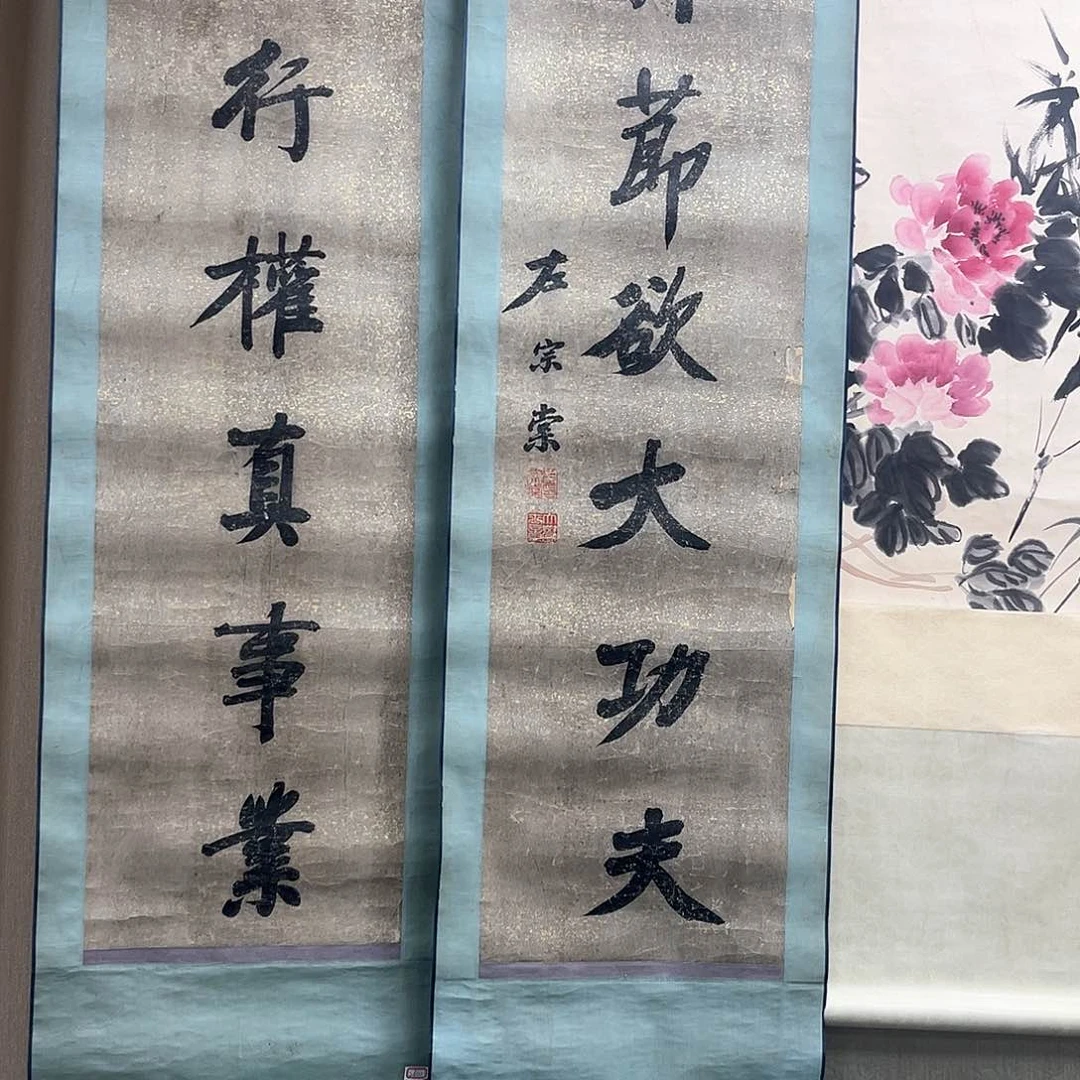 莭欲大功夫
左宗棠
行權真事業